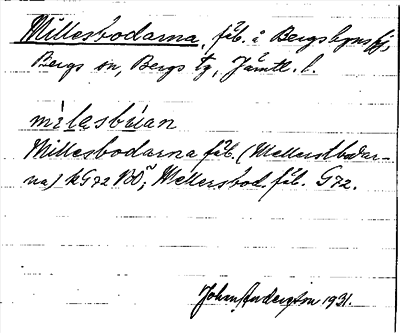 Millesbodarna, fäb. å Bergsbyns fj,
Bergs sn, Bergs tg, Jämtl. l.
mìlasbúan
Millesbodarna fäb. (Mellerstbodar-
na) k G72 NÖ; Mellersbod. fäb. G72.
John Anderzon 1931.